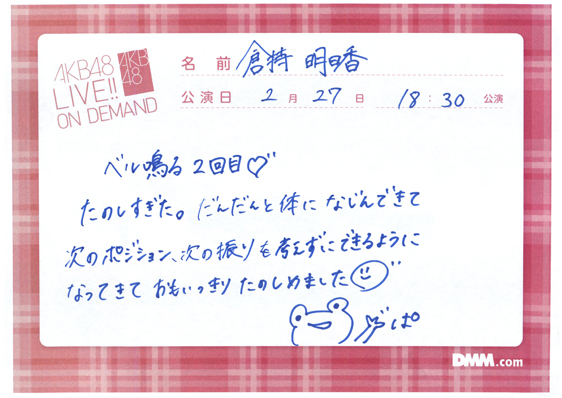 AKB48
LIVE!!
ON DEMAND
AKB
48
名前 倉持 明日香
公演日 2月27日 18:30公演
ベル鳴る2回目♡
たのしすぎた。だんだんと体になじんできて
次のポジション、次の振りを考えずにできるように
なってきておもいっきりたのしめました
ぱ
DMM.com